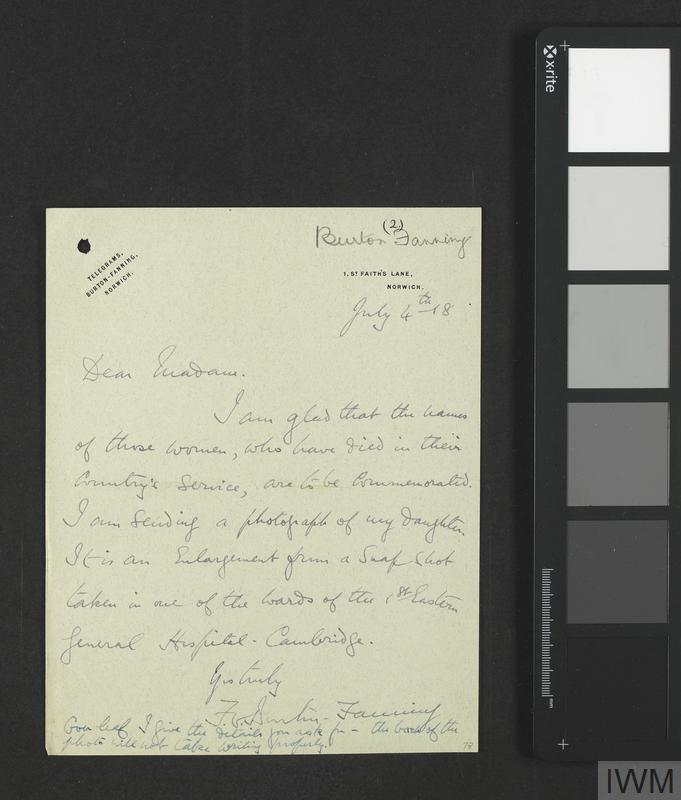 (2)
Burton Fanning
TELEGRAMS,
BURTON-FANNING,
NORWICH.
1, ST FAITH'S LANE,
NORWICH.
July 4th 18
Dear Madam.
I am glad that the names
of those women, who have died in their
Country's Service, are to be Commemorated.
I am sending a photograph of my daughter.
It is an Enlargement from a Snap Shot
taken in one of the wards of the 1st Eastern
General Hospital - Cambridge.
Yrs truly
F. W. Burton-Fanning
Over leaf I give the details you ask for - the back of the
photo will not take writing properly.
79
x-rite
mm
IWM